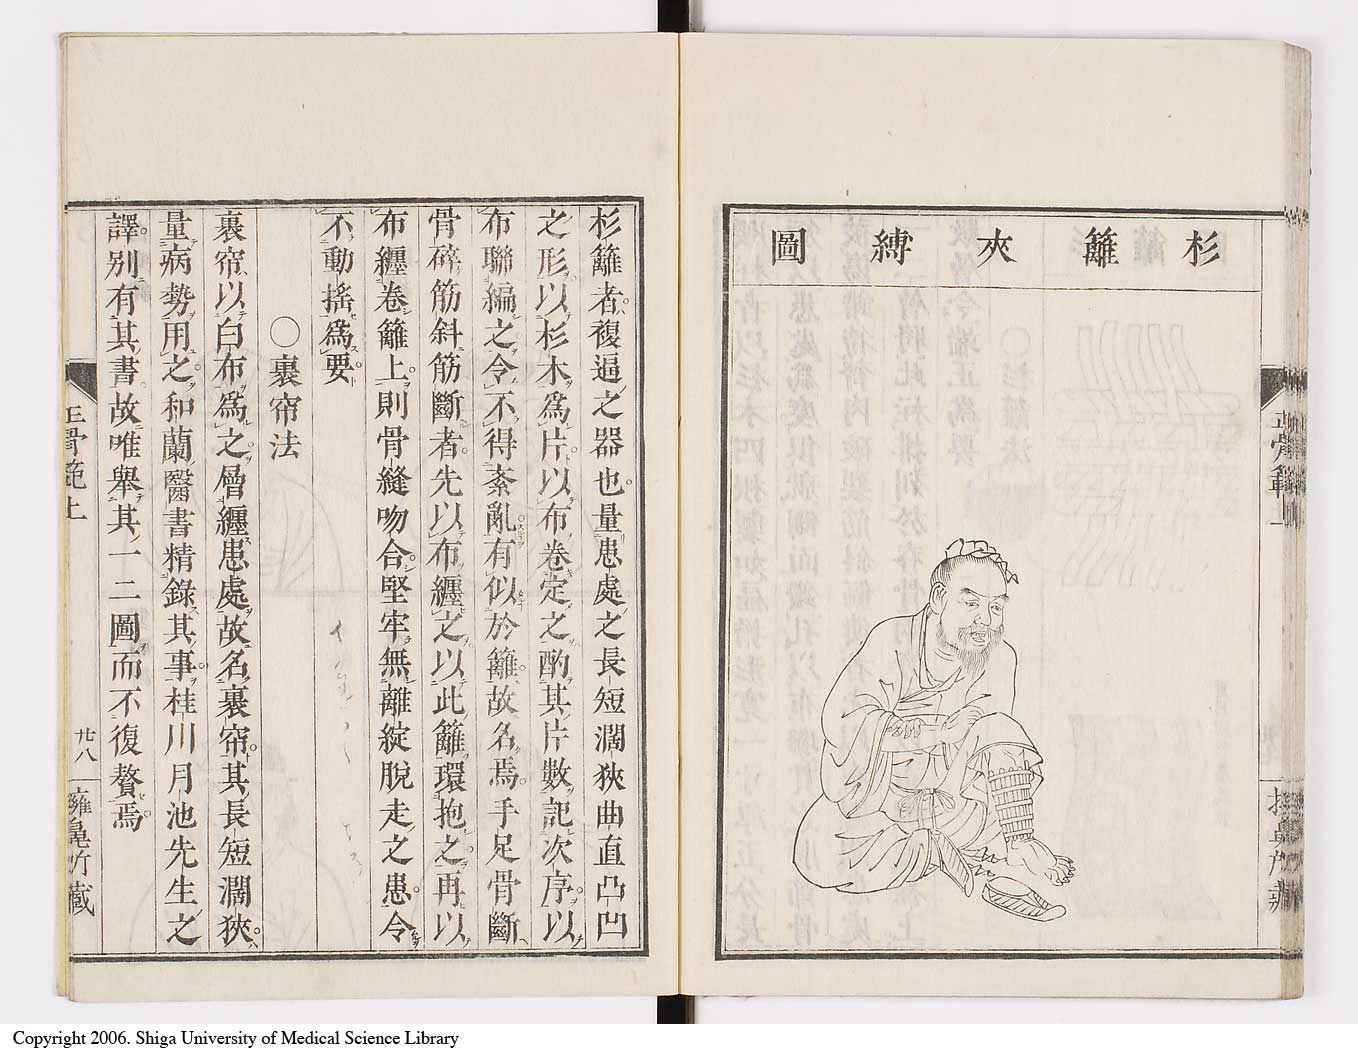 杉籬夾縛圖
杉籬者複逼之器也量患處之長短濶狹曲直凸凹
之形以杉木爲片以布卷定之酌其片數記次序以
布聯編之令不得紊亂有似於籬故名焉手足骨斷
骨碎筋斜筋斷者先以布纒之以此籬環抱之再以
布纒卷籬上則骨縫吻合堅牢無離綻脫走之患令
不動搖爲要
〇裹帘法
裹帘以白布爲之層纒患處故名裹帘其長短濶狹
量病勢用之和蘭醫書精錄其事桂川月池先生之
譯別有其書故唯舉其一二圖而不復贅焉
正骨範上
廿八
Copyright 2006. Shiga University of Medical Science Library